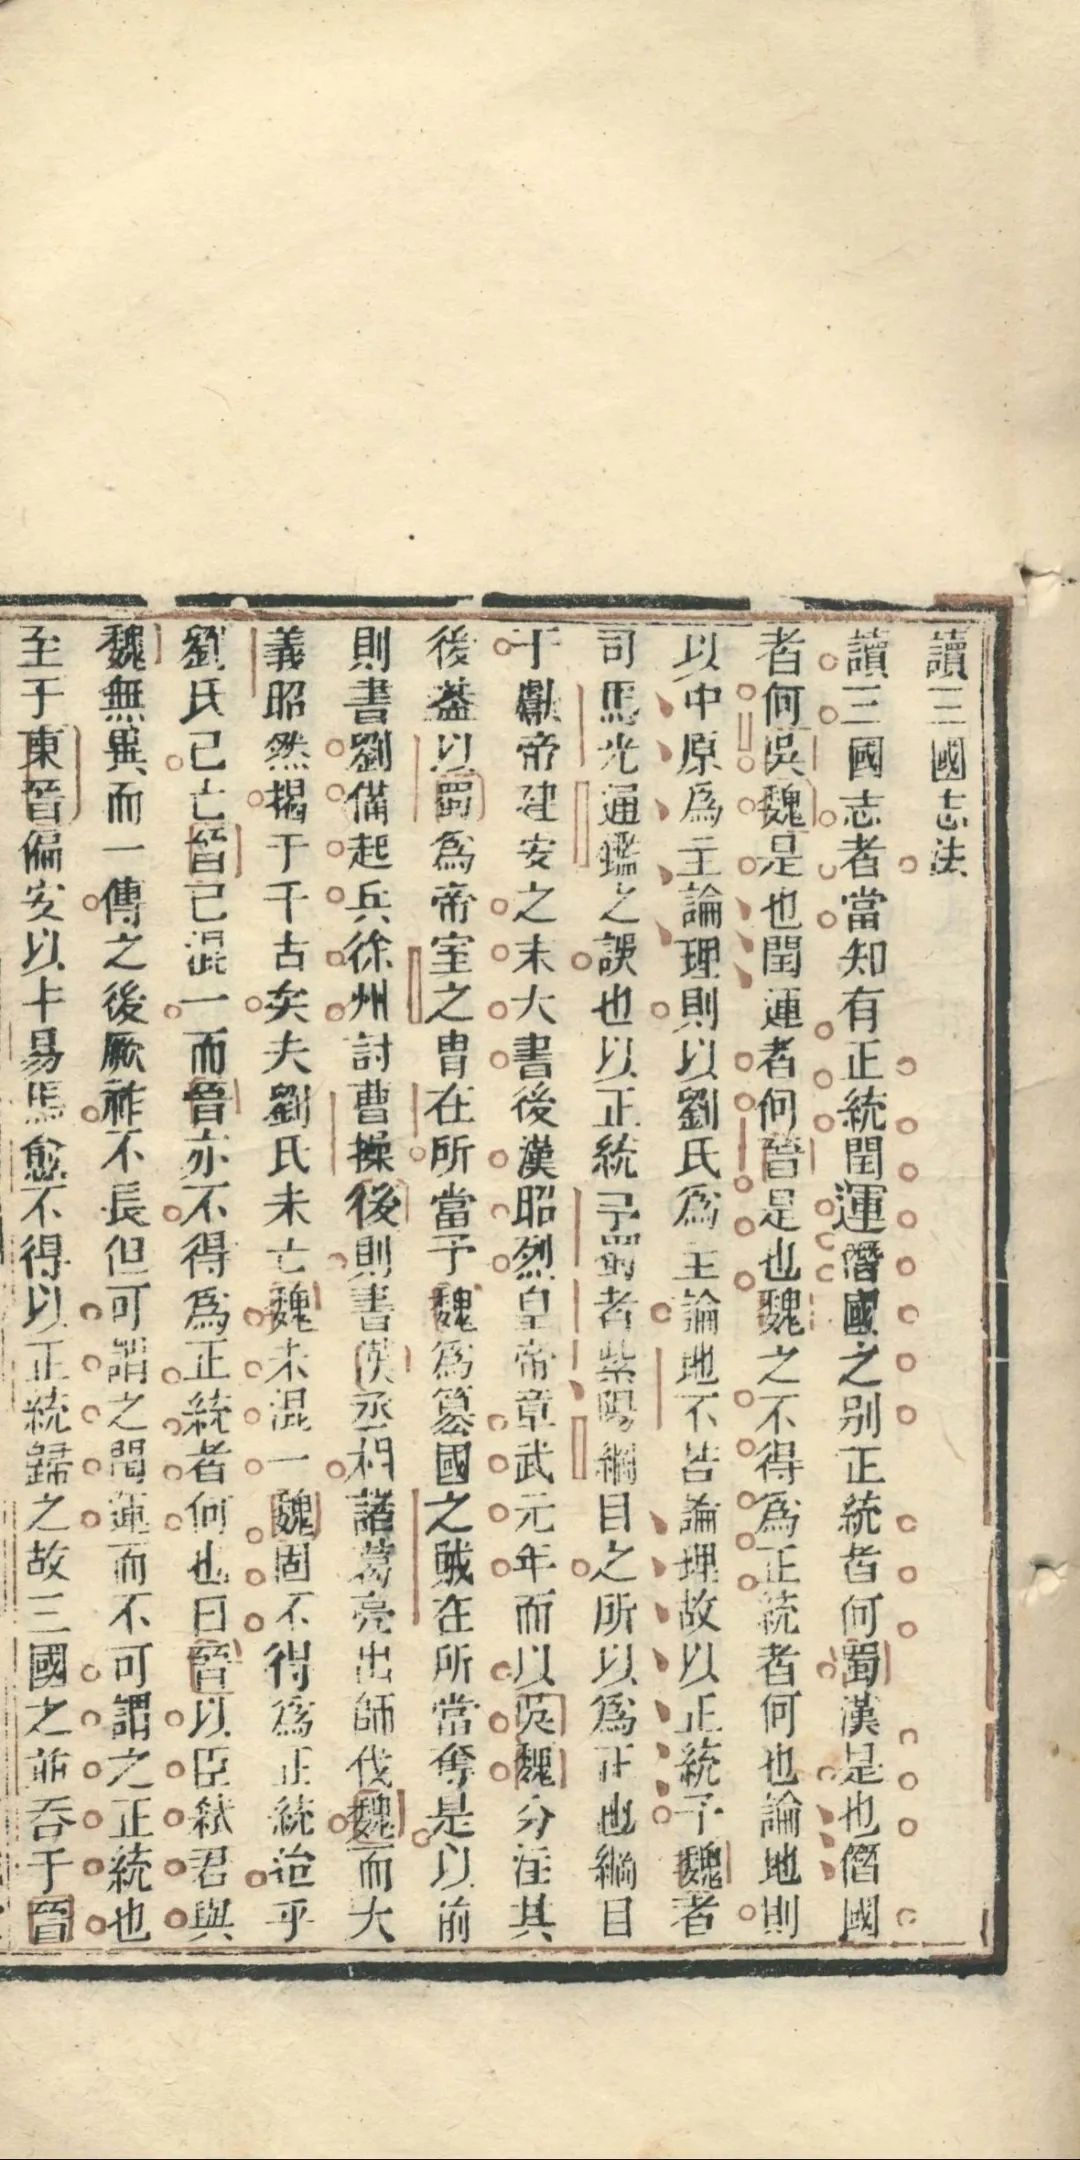 讀三國志法
讀三國志者當知有正統閏運僭國之別正統者何蜀漢是也僭國
者何吳魏是也閏運者何晉是也魏之不得為正統者何也論地則
以中原為主論理則以劉氏為主論地不若論理故以正統予魏者
司馬光通鑑之誤也以正統予蜀者紫陽綱目之所以為正也綱目
于獻帝建安之末大書後漢昭烈皇帝章武元年而以吳魏分注其
後蓋以蜀為帝室之胄在所當予魏為篡國之賊在所當奪是以前
則書劉備起兵徐州討曹操後則書漢丞相諸葛亮出師伐魏而大
義昭然揭于千古矣夫劉氏未亡魏未混一魏固不得為正統迨乎
劉氏已亡晉已混一而晉亦不得為正統者何也曰晉以臣弒君與
魏無異而一傳之後厥祚不長但可謂之閏運而不可謂之正統也
至于東晉偏安以牛易馬愈不得以正統歸之故三國之並吞于晉